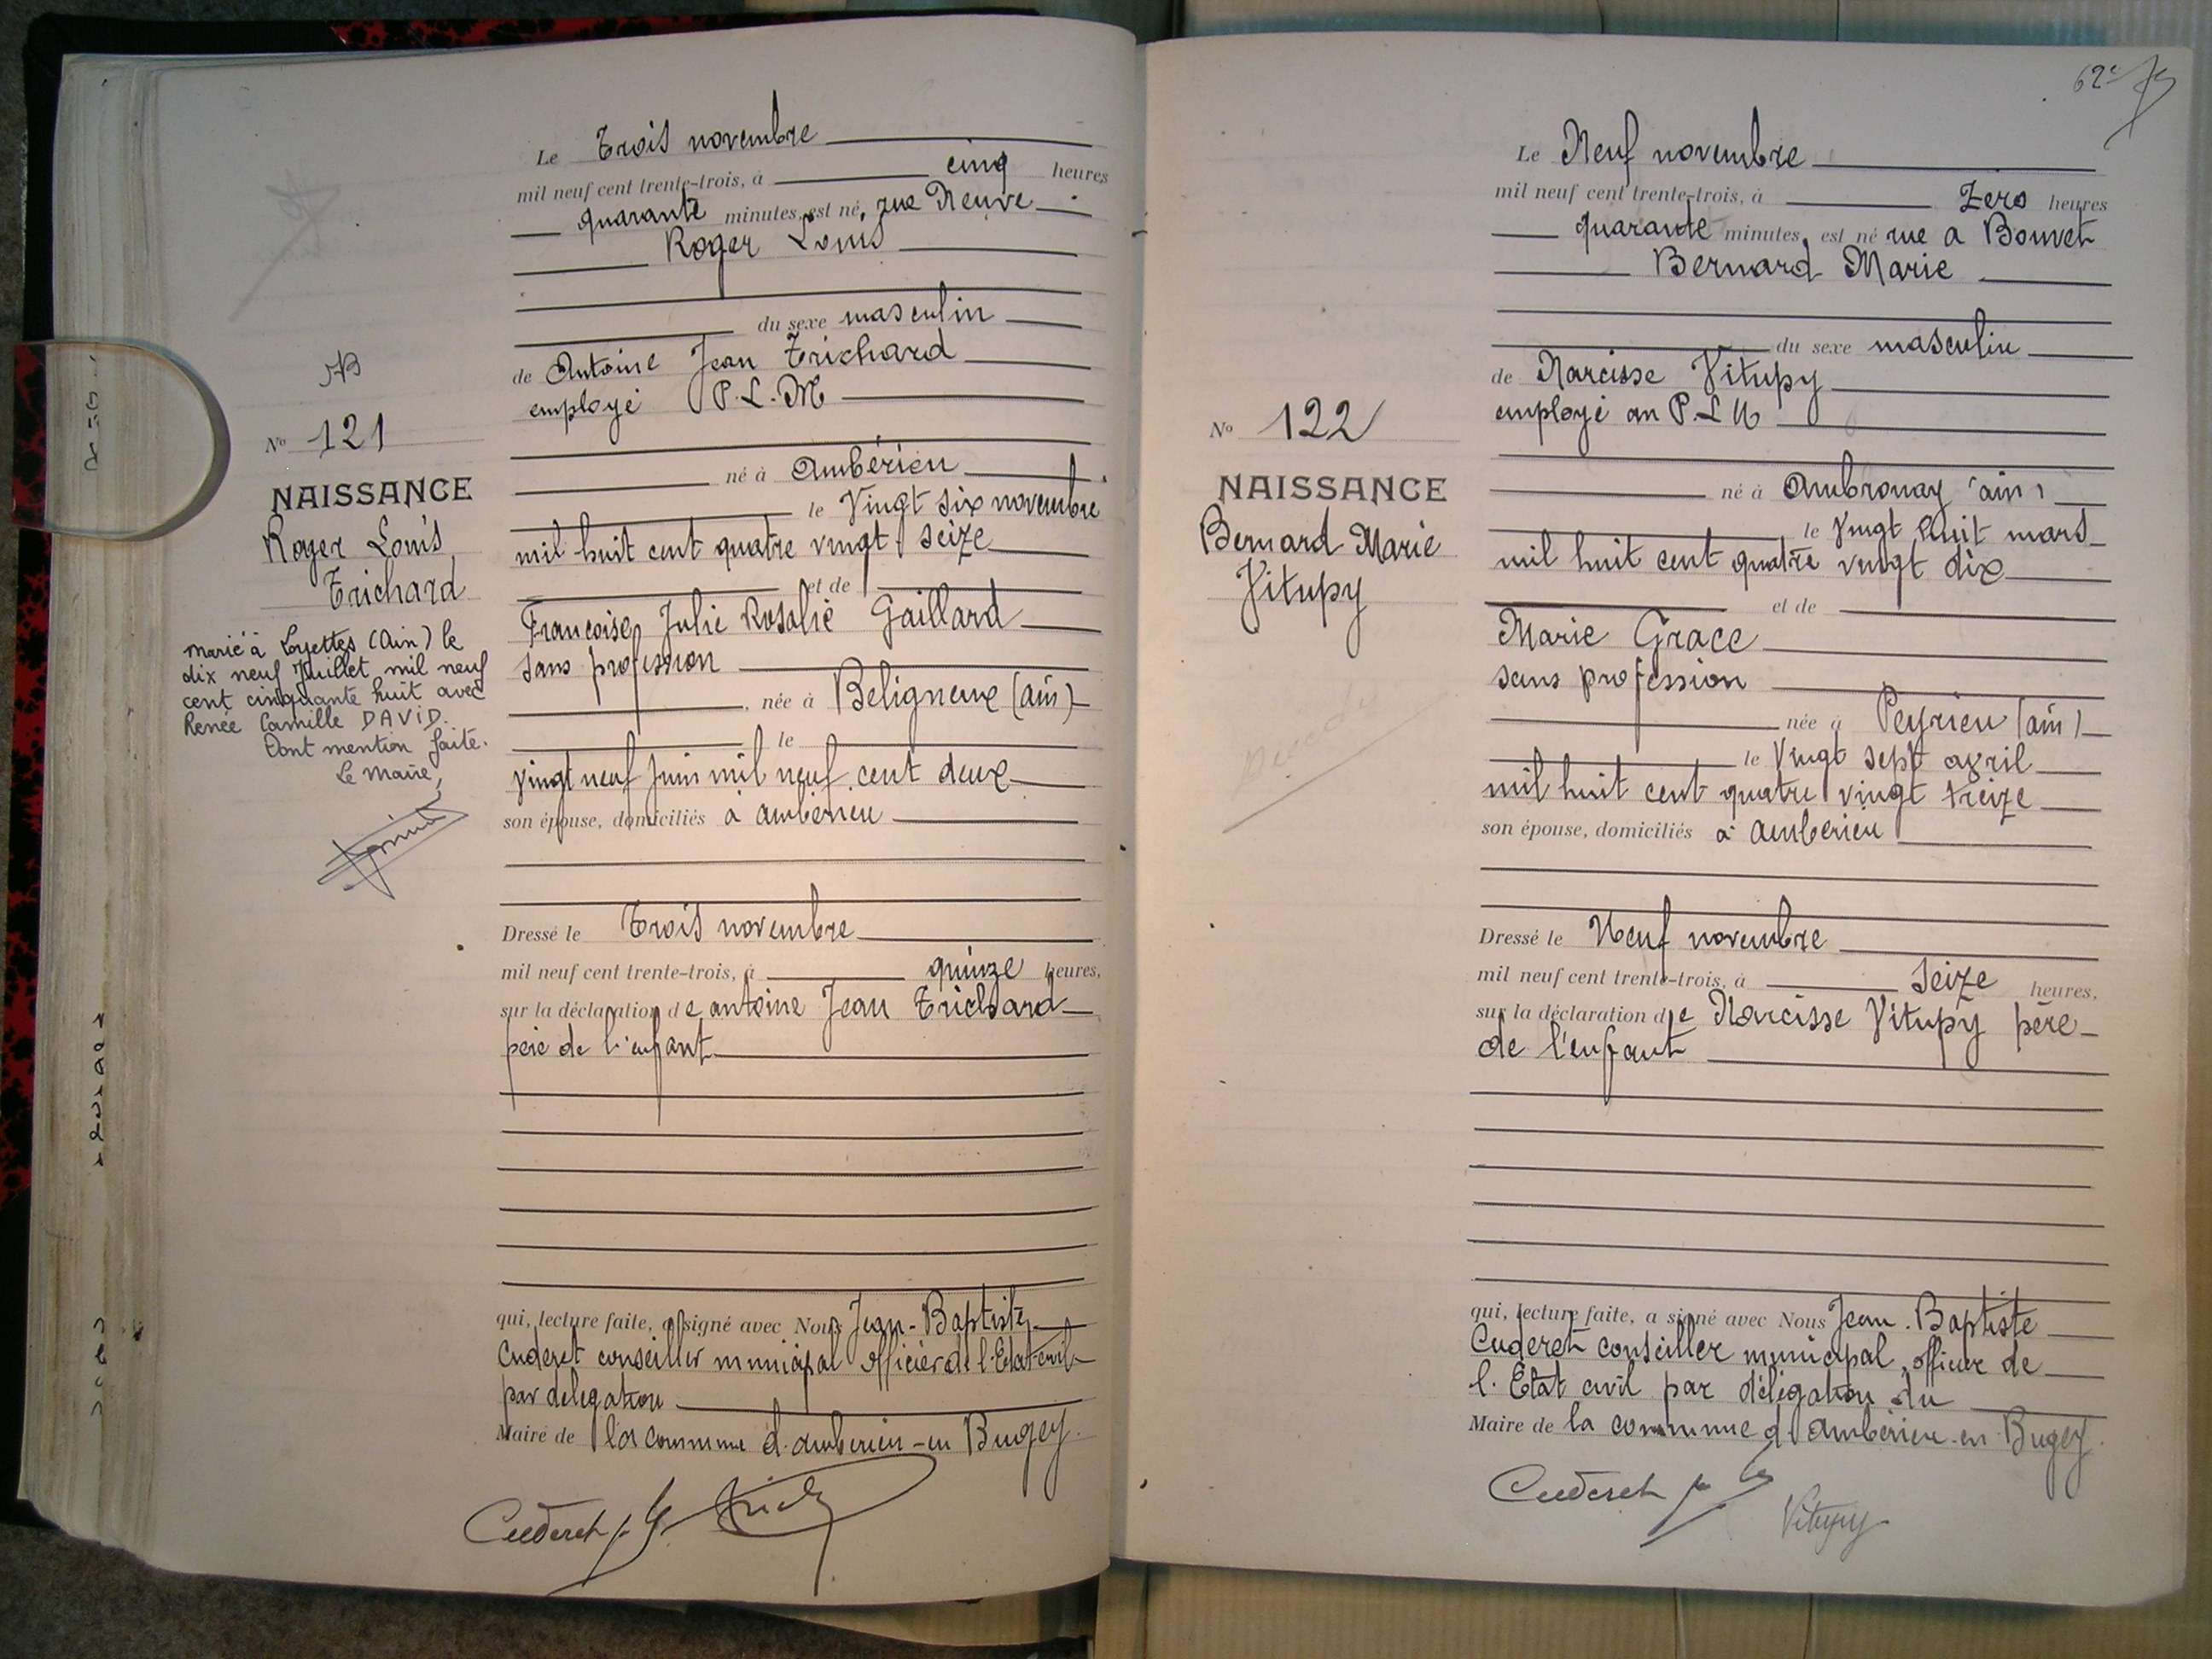 Le Trois novembre
mil neuf cent trente-trois, à cinq heures
quarante minutes, est né, rue Neuve
Roger Louis
du sexe masculin
de Antoine Jean Trichard
employé P.L.M
né à Ambérieu
le Vingt six novembre
mil huit cent quatre vingt seize
et de
Françoise Julie Rosalie Gaillard
sans profession
, née à Beligneux (ain)
le
vingt neuf juin mil neuf cent deux
son épouse, domiciliés à ambérieu
Dressé le Trois novembre
mil neuf cent trente-trois, à quinze heures,
sur la déclaration de antoine Jean Trichard
père de l'enfant
qui, lecture faite, a signé avec Nous Jean-Baptiste
Cuderet conseiller municipal officier de l'Etat civil
par delegation
Maire de la commune d'ambérieu-en Bugey.
Cuderet
No 121
NAISSANCE
Roger Louis
Trichard
marié à Loyettes (Ain) le
dix neuf Juillet mil neuf
cent cinquante huit avec
Renée Camille DAVID.
Dont mention faite.
Le Maire,
62e
Le Neuf novembre
mil neuf cent trente-trois, à Zero heures
quarante minutes, est né rue A Bouvet
Bernard Marie
du sexe masculin
de Narcisse Vitupy
employé au P.L.M
né à Ambronay (ain)
le Vingt huit mars
mil huit cent quatre vingt dix
et de
Marie Grace
sans profession
née à Peyrieu (ain)
le Vingt sept avril
mil huit cent quatre vingt treize
son épouse, domiciliés à ambérieu
Dressé le Neuf novembre
mil neuf cent trente-trois, à seize heures,
sur la déclaration de Narcisse Vitupy père
de l'enfant
qui, lecture faite, a signé avec Nous Jean-Baptiste
Cuderet conseiller municipal, officier de
l'Etat civil par délégation du
Maire de la commune d'ambérieu-en-Bugey.
Cuderet
Vitupy
No 122
NAISSANCE
Bernard Marie
Vitupy